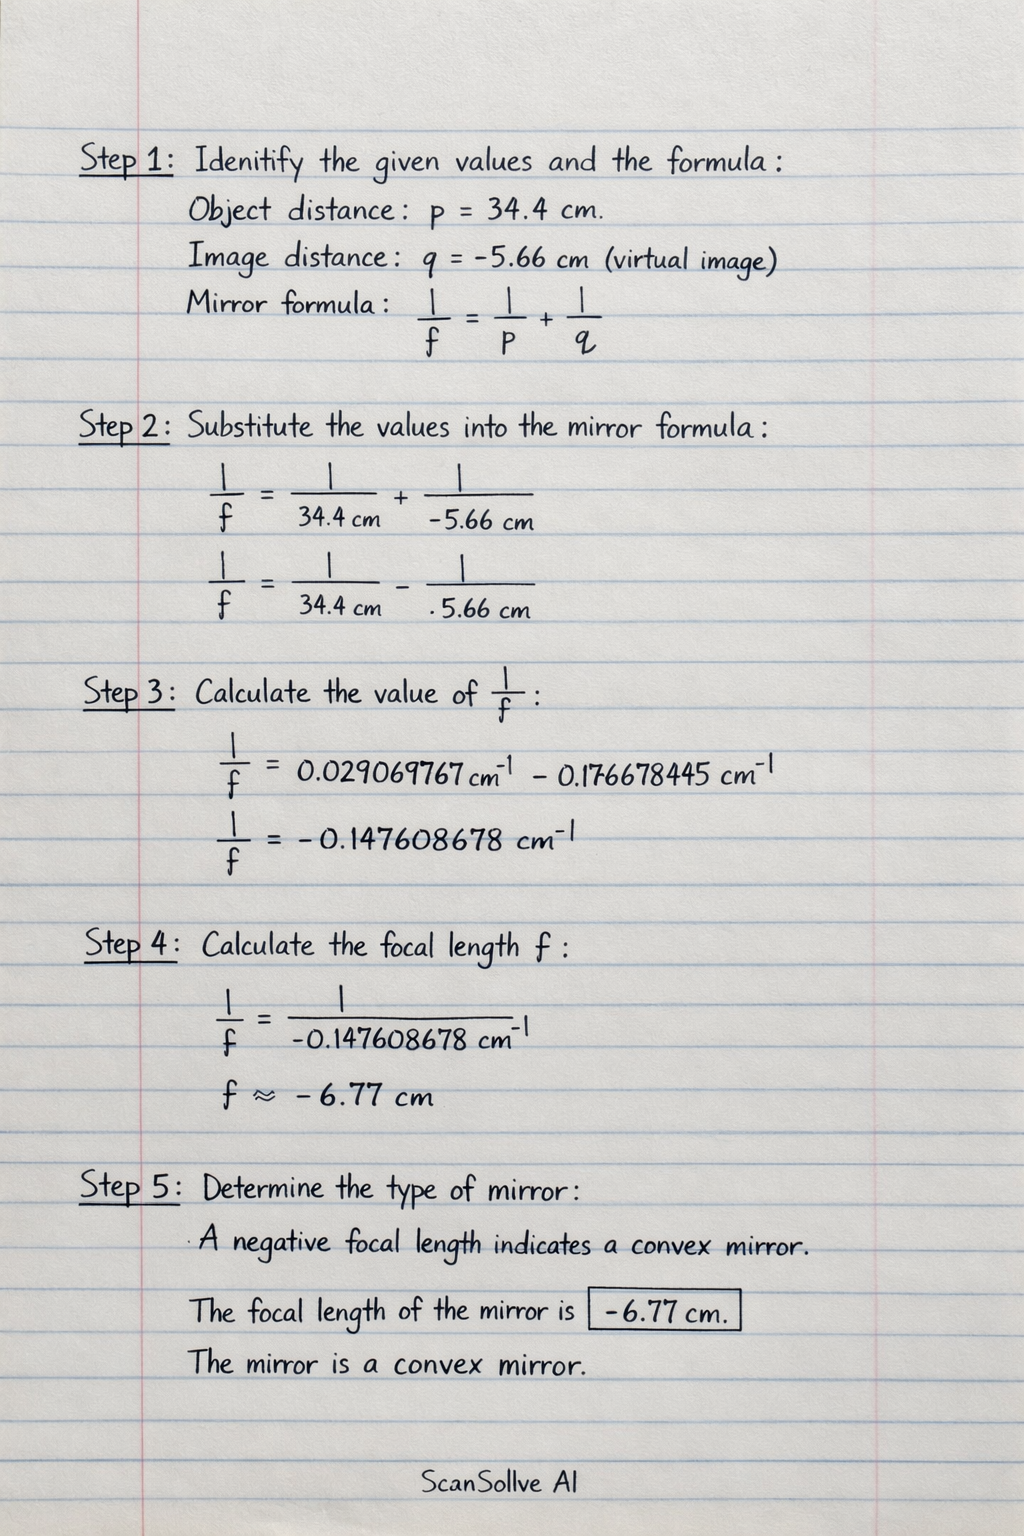 Step 1: Idenitify the given values and the formula:
Object distance: p = 34.4 cm.
Image distance: q = -5.66 cm (virtual image)
Mirror formula: 1/f = 1/p + 1/q
Step 2: Substitute the values into the mirror formula:
1/f = 1/34.4 cm + 1/-5.66 cm
1/f = 1/34.4 cm - 1/.5.66 cm
Step 3: Calculate the value of 1/f:
1/f = 0.029069767 cm⁻¹ - 0.176678445 cm⁻¹
1/f = -0.147608678 cm⁻¹
Step 4: Calculate the focal length f:
1/f = 1/-0.147608678 cm⁻¹
f ≈ -6.77 cm
Step 5: Determine the type of mirror:
· A negative focal length indicates a convex mirror.
The focal length of the mirror is -6.77 cm.
The mirror is a convex mirror.
ScanSollve AI